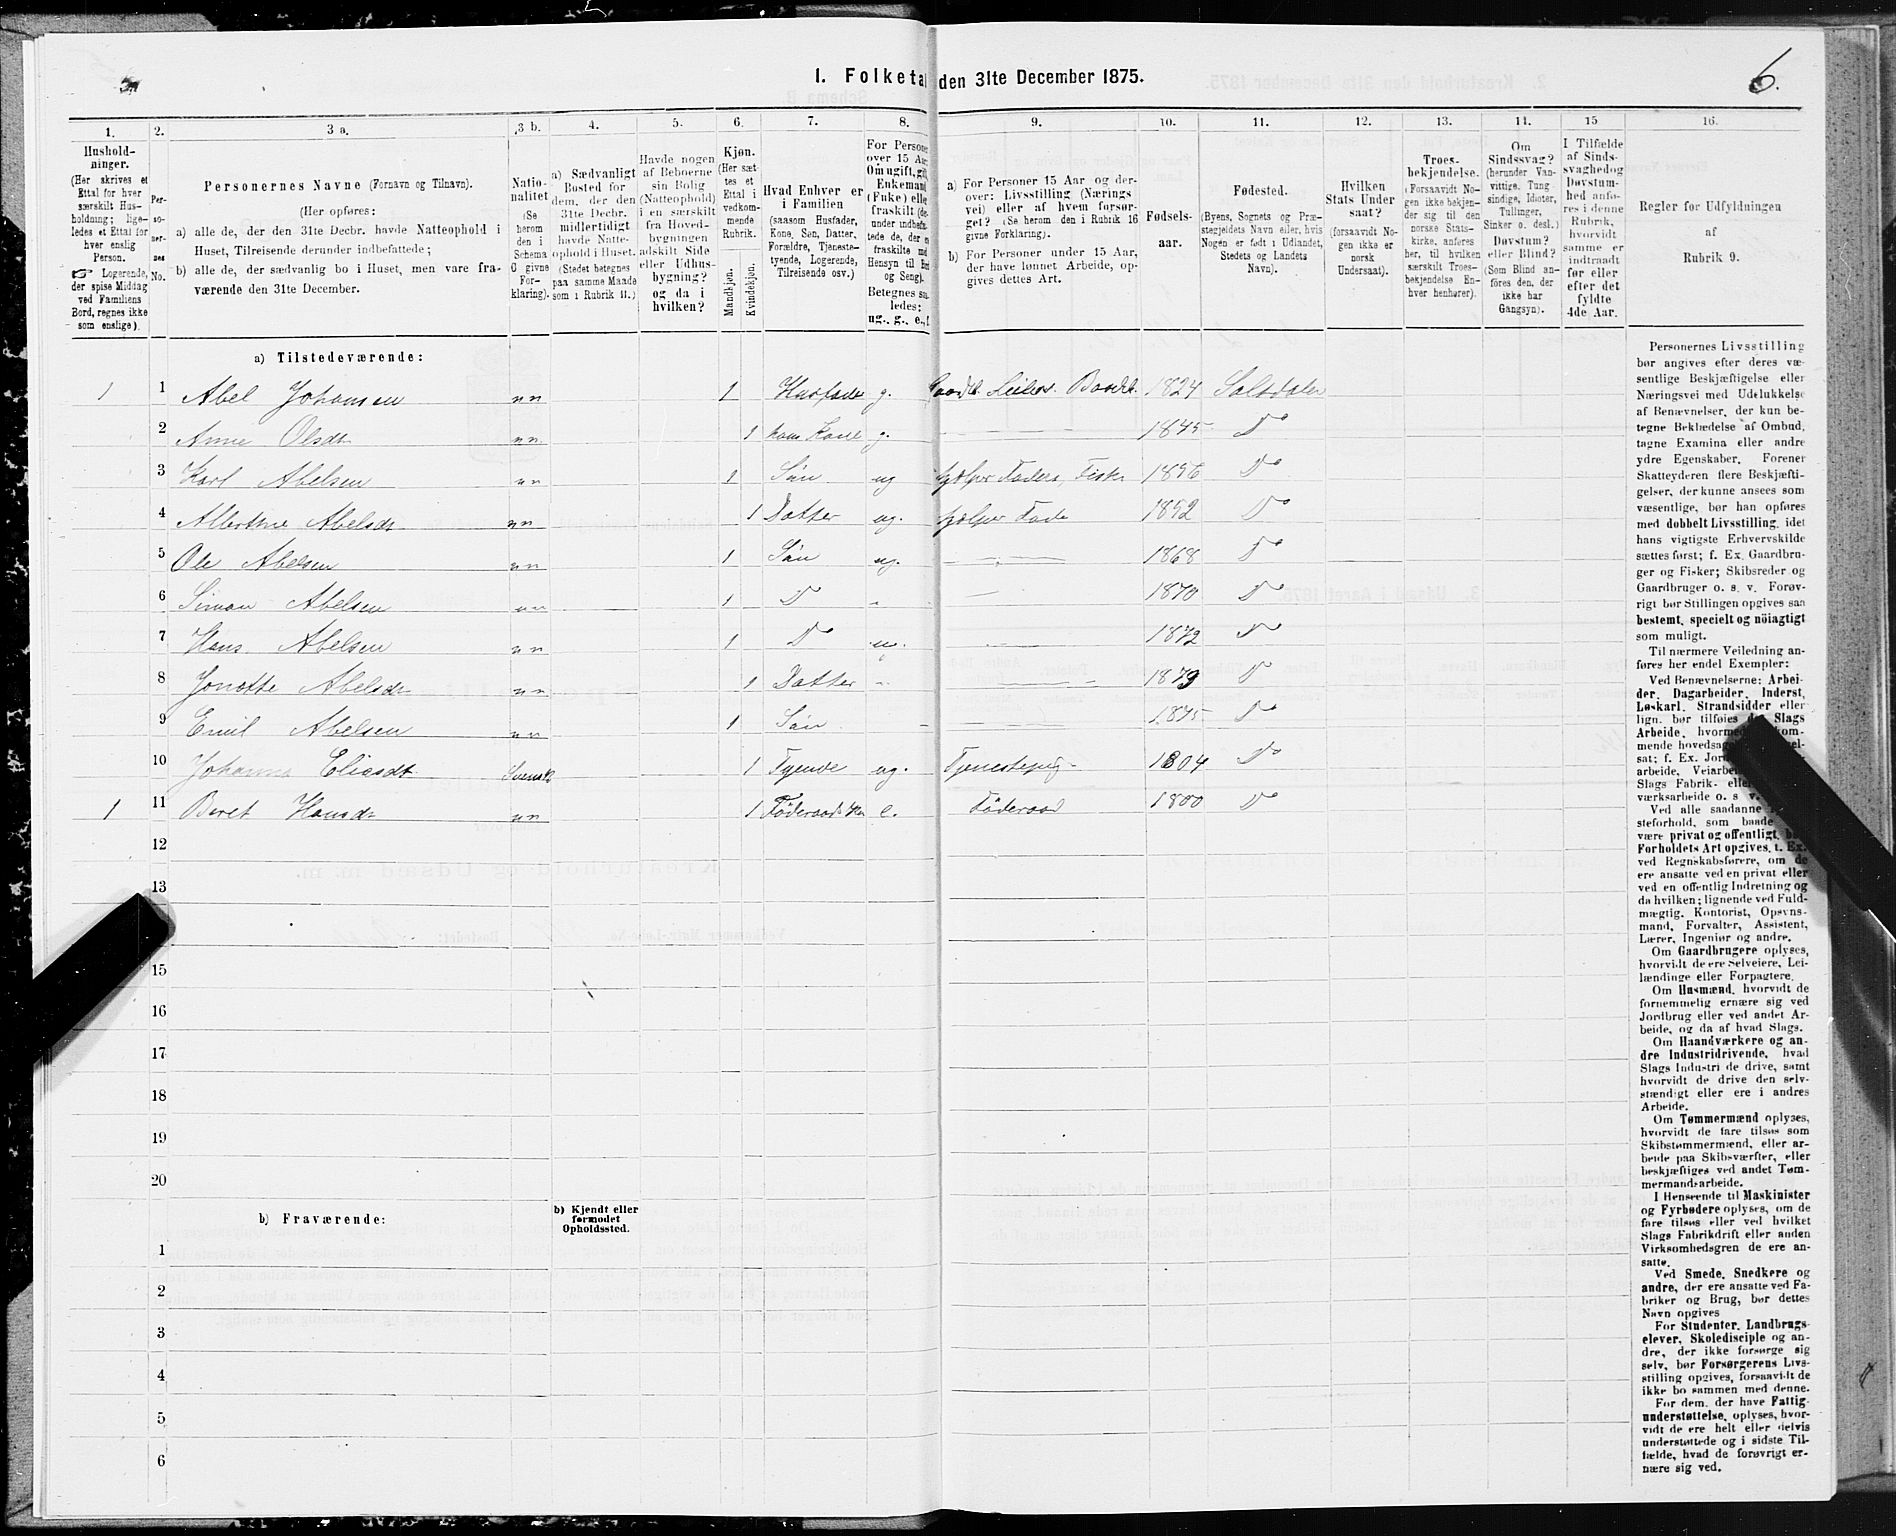 1. Folketal den 31te December 1875.
6.
1.
Hushold-
ninger.
(Her skrives et
Ettal for hver
særskilt Hus-
holdning; lige-
ledes et Ettal for
hver enslig
Person.
☞ Logerende,
der spise Middag
ved Familiens
Bord, regnes ikke
som enslige).
2.
Per-
so-
ner-
nes
No.
3 a.
Personernes Navne (Fornavn og Tilnavn).
(Her opføres:
a) alle de, der den 31te Decbr. havde Natteophold i
Huset, Tilreisende derunder indbefattede;
b) alle de, der sædvanlig bo i Huset, men vare fra-
værende den 31te December.
3 b.
Natio-
nalitet
(Se
herom
den i
Schema
C givne
For-
klaring).
4.
a) Sædvanligt
Bosted for
dem, der den
31te Decbr.
midlertidigt
havde Natte-
ophold i Huset.
(Stedet betegnes
paa samme Maade
som i Rubrik 11.)
5.
Havde nogen
af Beboerne
sin Bolig
(Natteophold)
i en særskilt
fra Hoved-
bygningen
adskilt Side
eller Udhus-
bygning?
og da i
hvilken?
6.
Kjøn.
(Her sæt-
tes et
Ettal i
vedkom-
mende
Rubrik.
Mandkjøn.
Kvindekjøn.
7.
Hvad Enhver er
i Familien
(saasom Husfader,
Kone, Søn, Datter,
Forældre, Tjeneste-
tyende, Logerende,
Tilreisende osv.)
8.
For Persone
over 15 Aar
Om ugift, gift
Enkemand
(Enke) elle
fraskilt
Betegnes saa
ledes:
ug., g., e.,
9.
a) For Personer 15 Aar og der-
over: Livsstilling (Nærings-
vei) eller af hvem forsør-
get? (Se herom den i Rubrik 16
givne Forklaring).
b) For Personer under 15 Aar,
der have lønnet Arbeide, op-
gives dettes Art.
10.
Fødsels-
aar.
11.
Fødested.
(Byens, Sognets og Præ-
stegjeldets Navn eller, hvis
Nogen er født i Udlandet,
Stedets og Landets
Navn).
12.
Hvilken
Stats Under
saat?
(forsaavidt No-
gen ikke er
norsk
Undersaat).
13.
Troes-
bekjendelse.
(Forsaavidt No-
gen ikke bekjen-
der sig til den
norske Stats-
kirke, anføres
her, til hvilken
særskilt Troes-
bekjendelse En-
hver henhører).
14.
Om
Sindssvag?
(herunder Van-
vittige, Tung
sindige, Idioter,
Tullinger,
Sinker o. desl.)
Døvstum?
eller Blind?
(Som Blind an-
føres den, der
ikke har
Gangsyn).
15
I Tilfælde
af Sinds-
svaghed og
Døvstum-
hed anfø-
res i denne
Rubrik,
hvorvidt
samme er
indtraadt
før eller
efter det
fyldte
4de Aar.
16.
Regler for Udfyldningen
af
Rubrik 9.
a) Tilstedeværende:
1 1 Abel Johansen nn 1 Husfader g. Leilex. 1824 Saltdalen
2 Anne Olsdt nn 1 hans Kone g. 1845 Do
3 Karl Abelsen nn 1 Sön ug hjelper Faders Fisker 1856 Do
4 Albertine Abelsdt nn 1 Datter ug. hjelper Fader 1852 Do
5 Ole Abelsen nn 1 Sön ug. 1868 Do
6 Simon Abelsen nn 1 Do 1870 Do
7 Hans Abelsen nn 1 Do 1872 Do
8 Abelsdt nn 1 Datter 1873 Do
9 Emil Abelsen nn 1 Sön 1875 Do
10 Johanna Eliasdt Svensk 1 Tyende ug. Tjenestepige 1804 Do
1 11 Beret Hansdt nn 1 e. Föderaad 1800 Do
12
13
15
16
17
18
19
20
b) Fraværende:
b) Kjendt eller
formodet
Opholdssted.
1
2
3
4
5
6
Personernes Livsstilling
bør angives efter deres væ-
sentlige Beskjæftigelse eller
Næringsvei med Udelukkelse
af Benævnelser, der kun be-
tegne Beklædelse af Ombud,
tagne Examina eller andre
ydre Egenskaber. Forener
Skatteyderen flere Beskjæfti-
gelser, der kunne ansees som
væsentlige, bør han opføres
med dobbelt Livsstilling, idet
hans vigtigste Erhvervskilde
sættes først; f. Ex. Gaardbru-
ger og Fisker; Skibsreder og
Gaardbruger o. s. v. Forøv-
rigt bør Stillingen opgives saa
bestemt, specielt og nöiagtigt
som muligt.
Til nærmere Veiledning an-
føres her endel Exempler:
Ved Benævnelserne: Arbei-
der, Dagarbeider, Inderst,
Løskarl, Strandsidder eller
lign. bør tilføies det Slags
Arbeide, hvormed
mende hovedsag
sat; f. Ex. Jord
arbeide, Veiarbei
Slags Fabrik- elle
værksarbeide o. s v.
Ved alle saadanne
steforhold, som baade
være privat og offentligt, bør
Forholdets Art opgives, t. Ex.
ved Regnskabsførere, om de
ere ansatte ved en privat eller
ved en offentlig Indretning og
da hvilken; lignende ved Fuld-
mægtig, Kontorist, Opsyns-
mand, Forvalter, Assistent,
Lærer, Ingeniør og andre.
Om Gaardbrugere oplyses,
hvorvidt de ere Selveiere, Lei-
lændinge eller Forpagtere.
Om Husmænd, hvorvidt de
fornemmelig ernære sig ved
Jordbrug eller ved andet Ar-
beide, og da af hvad Slags.
Om Haandværkere og an-
dre Industridrivende, hvad
Slags Industri de drive, samt
hvorvidt de drive den selv-
stændigt eller ere i andres
Arbeide.
Om Tømmermænd oplyses,
hvorvidt de fare tilsøs som
Skibstømmermænd, eller ar-
beide paa Skibsværfter, eller
beskjæftiges ved andet Tøm-
mermandsarbeide.
I Henseende til Maskinister
og Fyrbødere oplyses, om de
fare tilsøs eller ved hvilket
Slags Fabrikdrift eller anden
Virksomhedsgren de ere an-
satte.
Ved Smede, Snedkere og
andre, der ere ansatte ved Fa-
briker og Brug, bør dettes
Navn opgives
For Studenter, Landbrugs-
elever, Skoledisciple og an-
dre, der ikke forsørge sig
selv, bør Forsørgerens Livs-
stilling opgives, forsaavidt de
ikke bo sammen med denne.
For dem, der have Fattig-
understøttelse, oplyses, hvor-
vidt de ere helt eller delvis
understøttede og i sidste Til-
fælde, hvad de forøvrigt er-
nære sig ved.